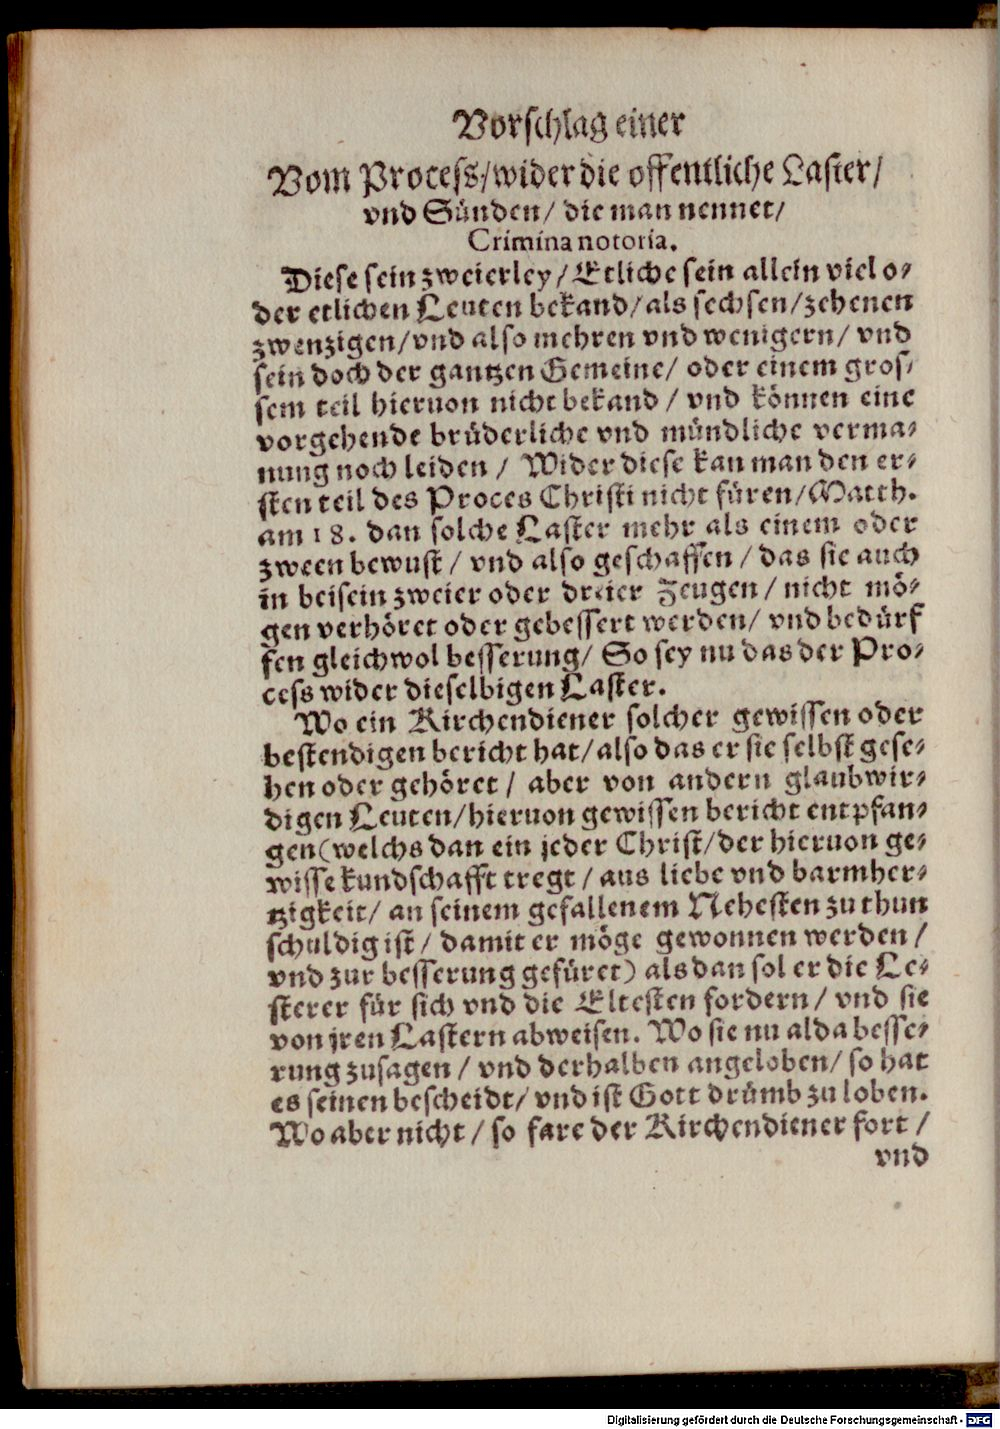 Vorschlag einer
Vom Process/wider die offentliche Laster/
vnd Sünden/ die man nennet/
Crimina notoria.
Diese sein zweierley/ Etliche sein allein viel o-
der etlichen Leuten bekand/ als sechsen/ zehenen
zwenzigen/ vnd also mehren vnd wenigern/ vnd
sein doch der gantzen Gemeine/ oder einem gros-
sem teil hieruon nicht bekand/ vnd können eine
vorgehende brüderliche vnd mündliche verma-
nung noch leiden/ Wider diese kan man den er-
sten teil des Proces Christi nicht füren/ Matth.
am 18. dan solche Laster mehr als einem oder
zween bewust/ vnd also geschaffen/ das sie auch
in beisein zweier oder dreier Zeugen/ nicht mö-
gen verhöret oder gebessert werden/ vnd bedürf
fen gleichwol besserung/ So sey nu das der Pro-
cess wider dieselbigen Laster.
Wo ein Kirchendiener solcher gewissen oder
bestendigen bericht hat/ also das er sie selbst gese-
hen oder gehöret/ aber von andern glaubwir-
digen Leuten/ hieruon gewissen bericht entpfan-
gen (welchs dan ein jeder Christ/ der hieruon ge-
wisse kundschafft tregt/ aus liebe vnd barmher-
tzigkeit/ an seinem gefallenem Nehesten zu thun
schuldig ist/ damit er möge gewonnen werden/
vnd zur besserung gefüret) als dan sol er die Le-
sterer für sich vnd die Eltesten fordern/ vnd sie
von jren Lastern abweisen. Wo sie nu alda besse-
rung zusagen/ vnd derhalben angeloben/ so hat
es seinen bescheidt/ vnd ist Gott drümb zu loben.
Wo aber nicht/ so fare der Kirchendiener fort/
vnd
Digitalisierung gefördert durch die Deutsche Forschungsgemeinschaft - DFG